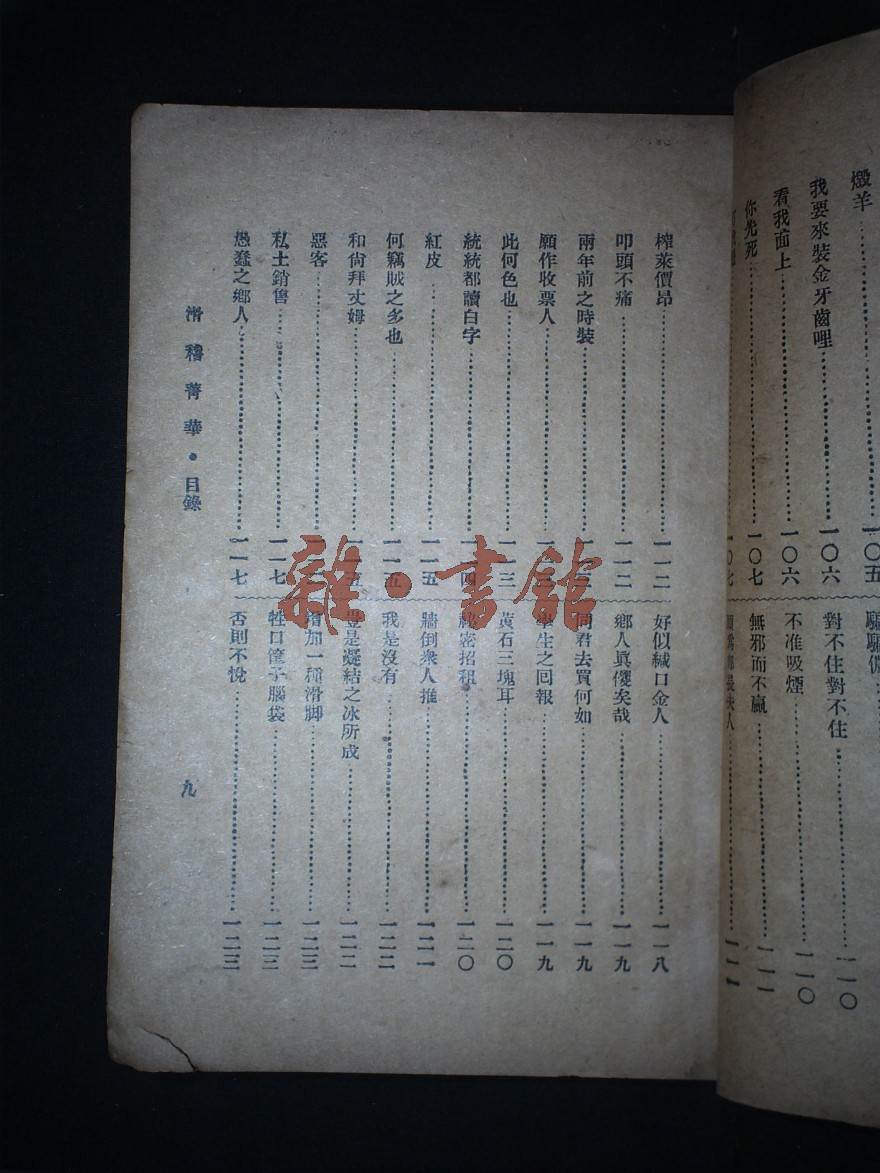 燬羊 一〇五
我要來裝金牙齒哩 一〇六
看我面上 一〇六
你先死 一〇七
一〇七
對不住對不住 一一〇
不准吸煙 一一〇
無邪而不贏 一一一
夫人 一一一
榨菜價昂 一一二
叩頭不痛 一一二
兩年前之時裝
願作收票人
此何色也 一一三
統統都讀白字 一一四
紅皮 一一五
何竊賊之多也 一一五
和尙拜丈姆
惡客
私土銷售 一一七
愚蠢之鄉人 一一七
好似緘口金人 一一八
鄉人眞儍矣哉 一一九
同君去買何如 一一九
學生之回報 一一九
黃石三塊耳 一二〇
祕密招租 一二〇
牆倒衆人推 一二一
我是沒有 一二二
豈是凝結之冰所成 一二二
增加一種滑脚 一二三
牲口筐子腦袋 一二三
否則不悅 一二三
滑稽菁華●目錄
九
雜·書館